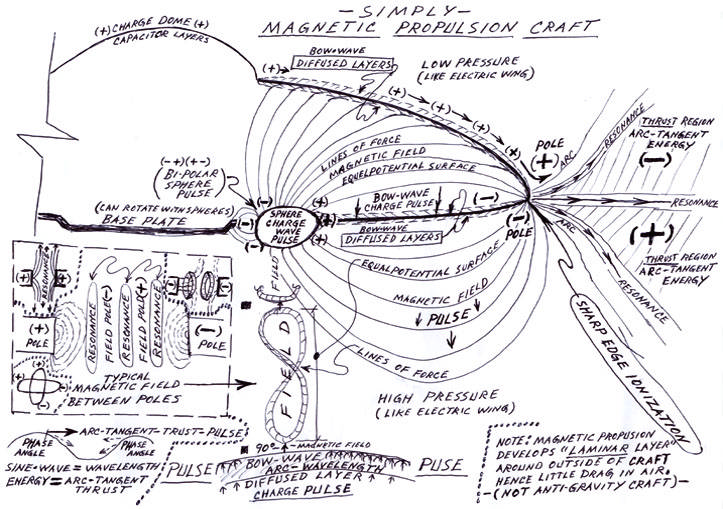 — SIMPLY —
MAGNETIC PROPULSION CRAFT
(+) CHARGE DOME (+)
CAPACITOR LAYERS
BOW-WAVE
(+) → DIFFUSED LAYERS
LOW PRESSURE
(LIKE ELECTRIC WING)
(+)
(+)
(+)
(+)
(+)
(+)
POLE
(+)
ARC
RESONANCE
THRUST REGION
ARC-TANGENT
ENERGY
(—)
RESONANCE
(+)
THRUST REGION
ARC-TANGENT
ENERGY
RESONANCE
ARC
LINES OF FORCE
MAGNETIC FIELD
EQUELPOTENTIAL SURFACE
(-+)(+-)
BI-POLAR
SPHERE
PULSE
(CAN ROTATE WITH SPHERES)
BASE PLATE
(-)
(-)
(-)
(+)
(+)
(+)
SPHERE
CHARGE
WAVE
PULSE
BOW-WAVE
CHARGE PULSE
(—)
BOW-WAVE
DIFFUSED LAYERS
(—)
POLE
EQUALPOTENTIAL SURFACE
MAGNETIC FIELD
PULSE
LINES OF FORCE
SHARP EDGE IONIZATION
HIGH PRESSURE
(LIKE ELECTRIC WING)
RESONANCE
(+)
POLE
RESONANCE
FIELD POLE(-)
RESONANCE
FIELD POLE(+)
RESONANCE
(—)
POLE
(+)
(+)
(-)
(-)
TYPICAL
MAGNETIC FIELD
BETWEEN POLES
FIELD
FIELD
90°
MAGNETIC FIELD
ARC-TANGENT-TRUST-PULSE
PHASE
ANGLE
PHASE
ANGLE
SINE-WAVE = WAVELENGTH
ENERGY = ARC-TANGENT
THRUST
PULSE
BOW-WAVE
ARC-WAVELENGTH
DIFFUSED LAYER
CHARGE PULSE
PUSE
NOTE: MAGNETIC PROPUSION
DEVELOPS "LAMINAR LAYER"
AROUND OUTSIDE OF CRAFT
HENCE LITTLE DRAG IN AIR.
—(NOT ANTI-GRAVITY CRAFT)—